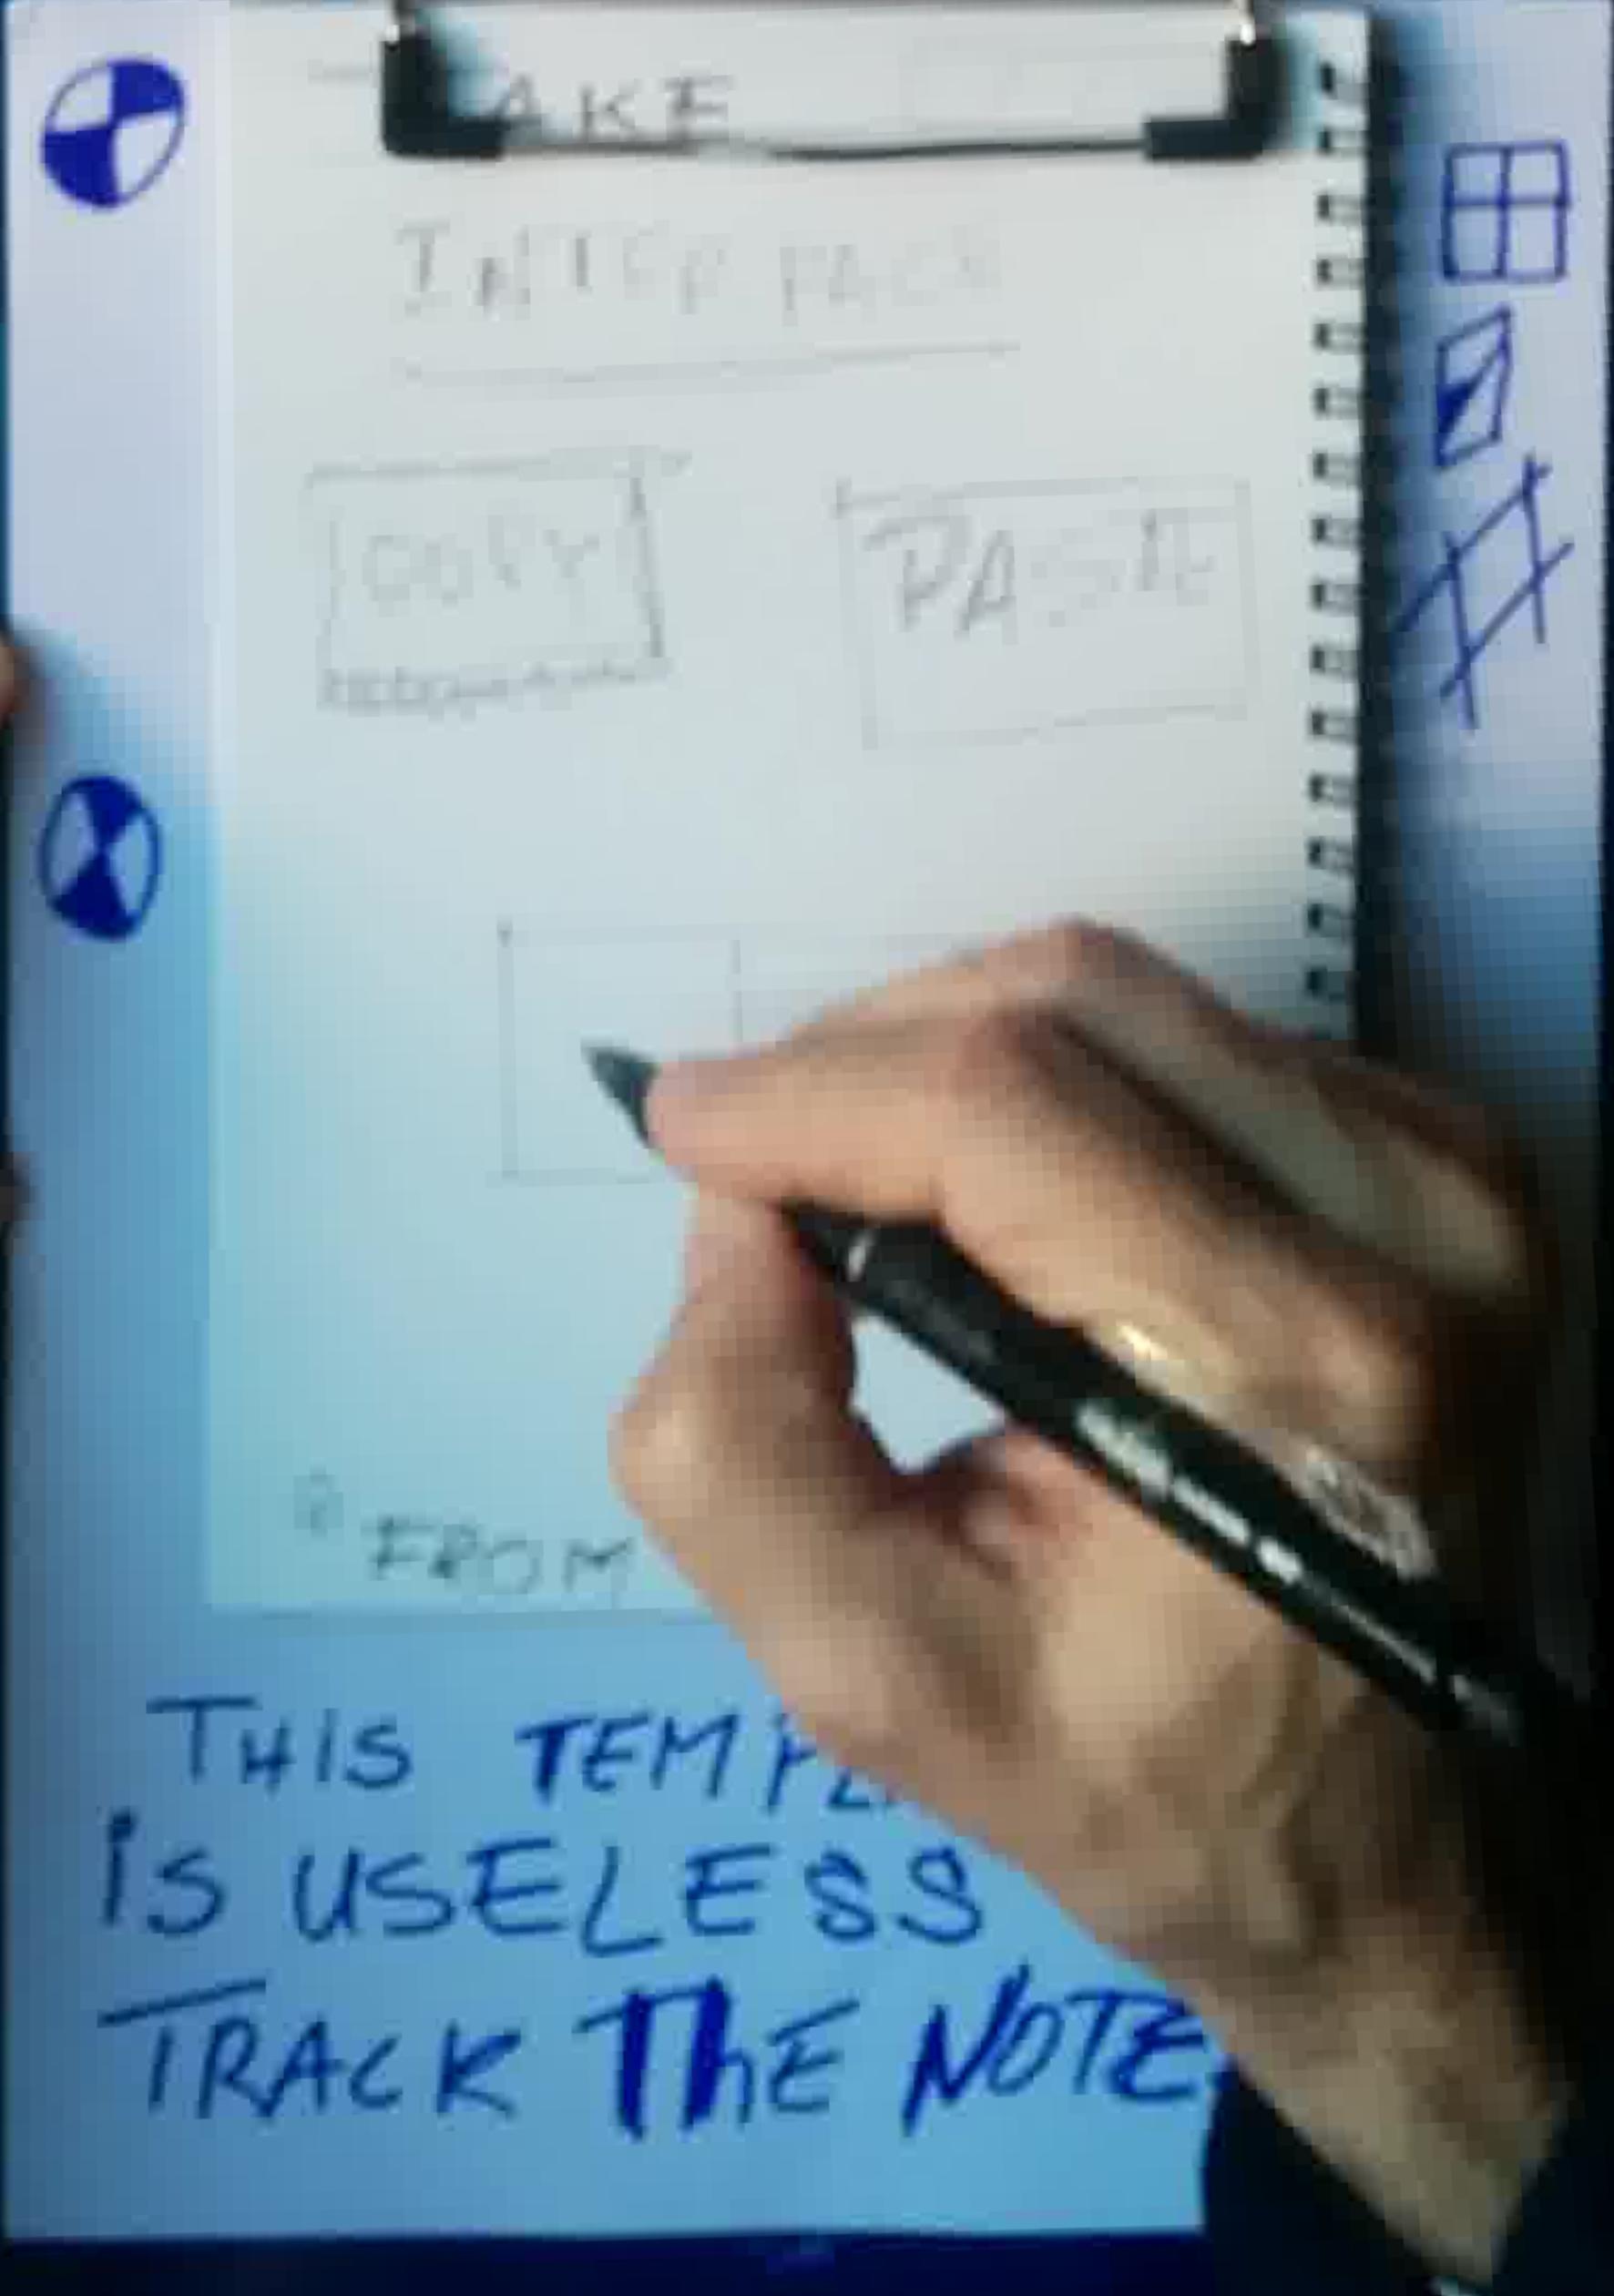 AKE
INTERFACE
COPY
PASTE
FROM
THIS TEMPL
IS USELESS
TRACK THE NOTE